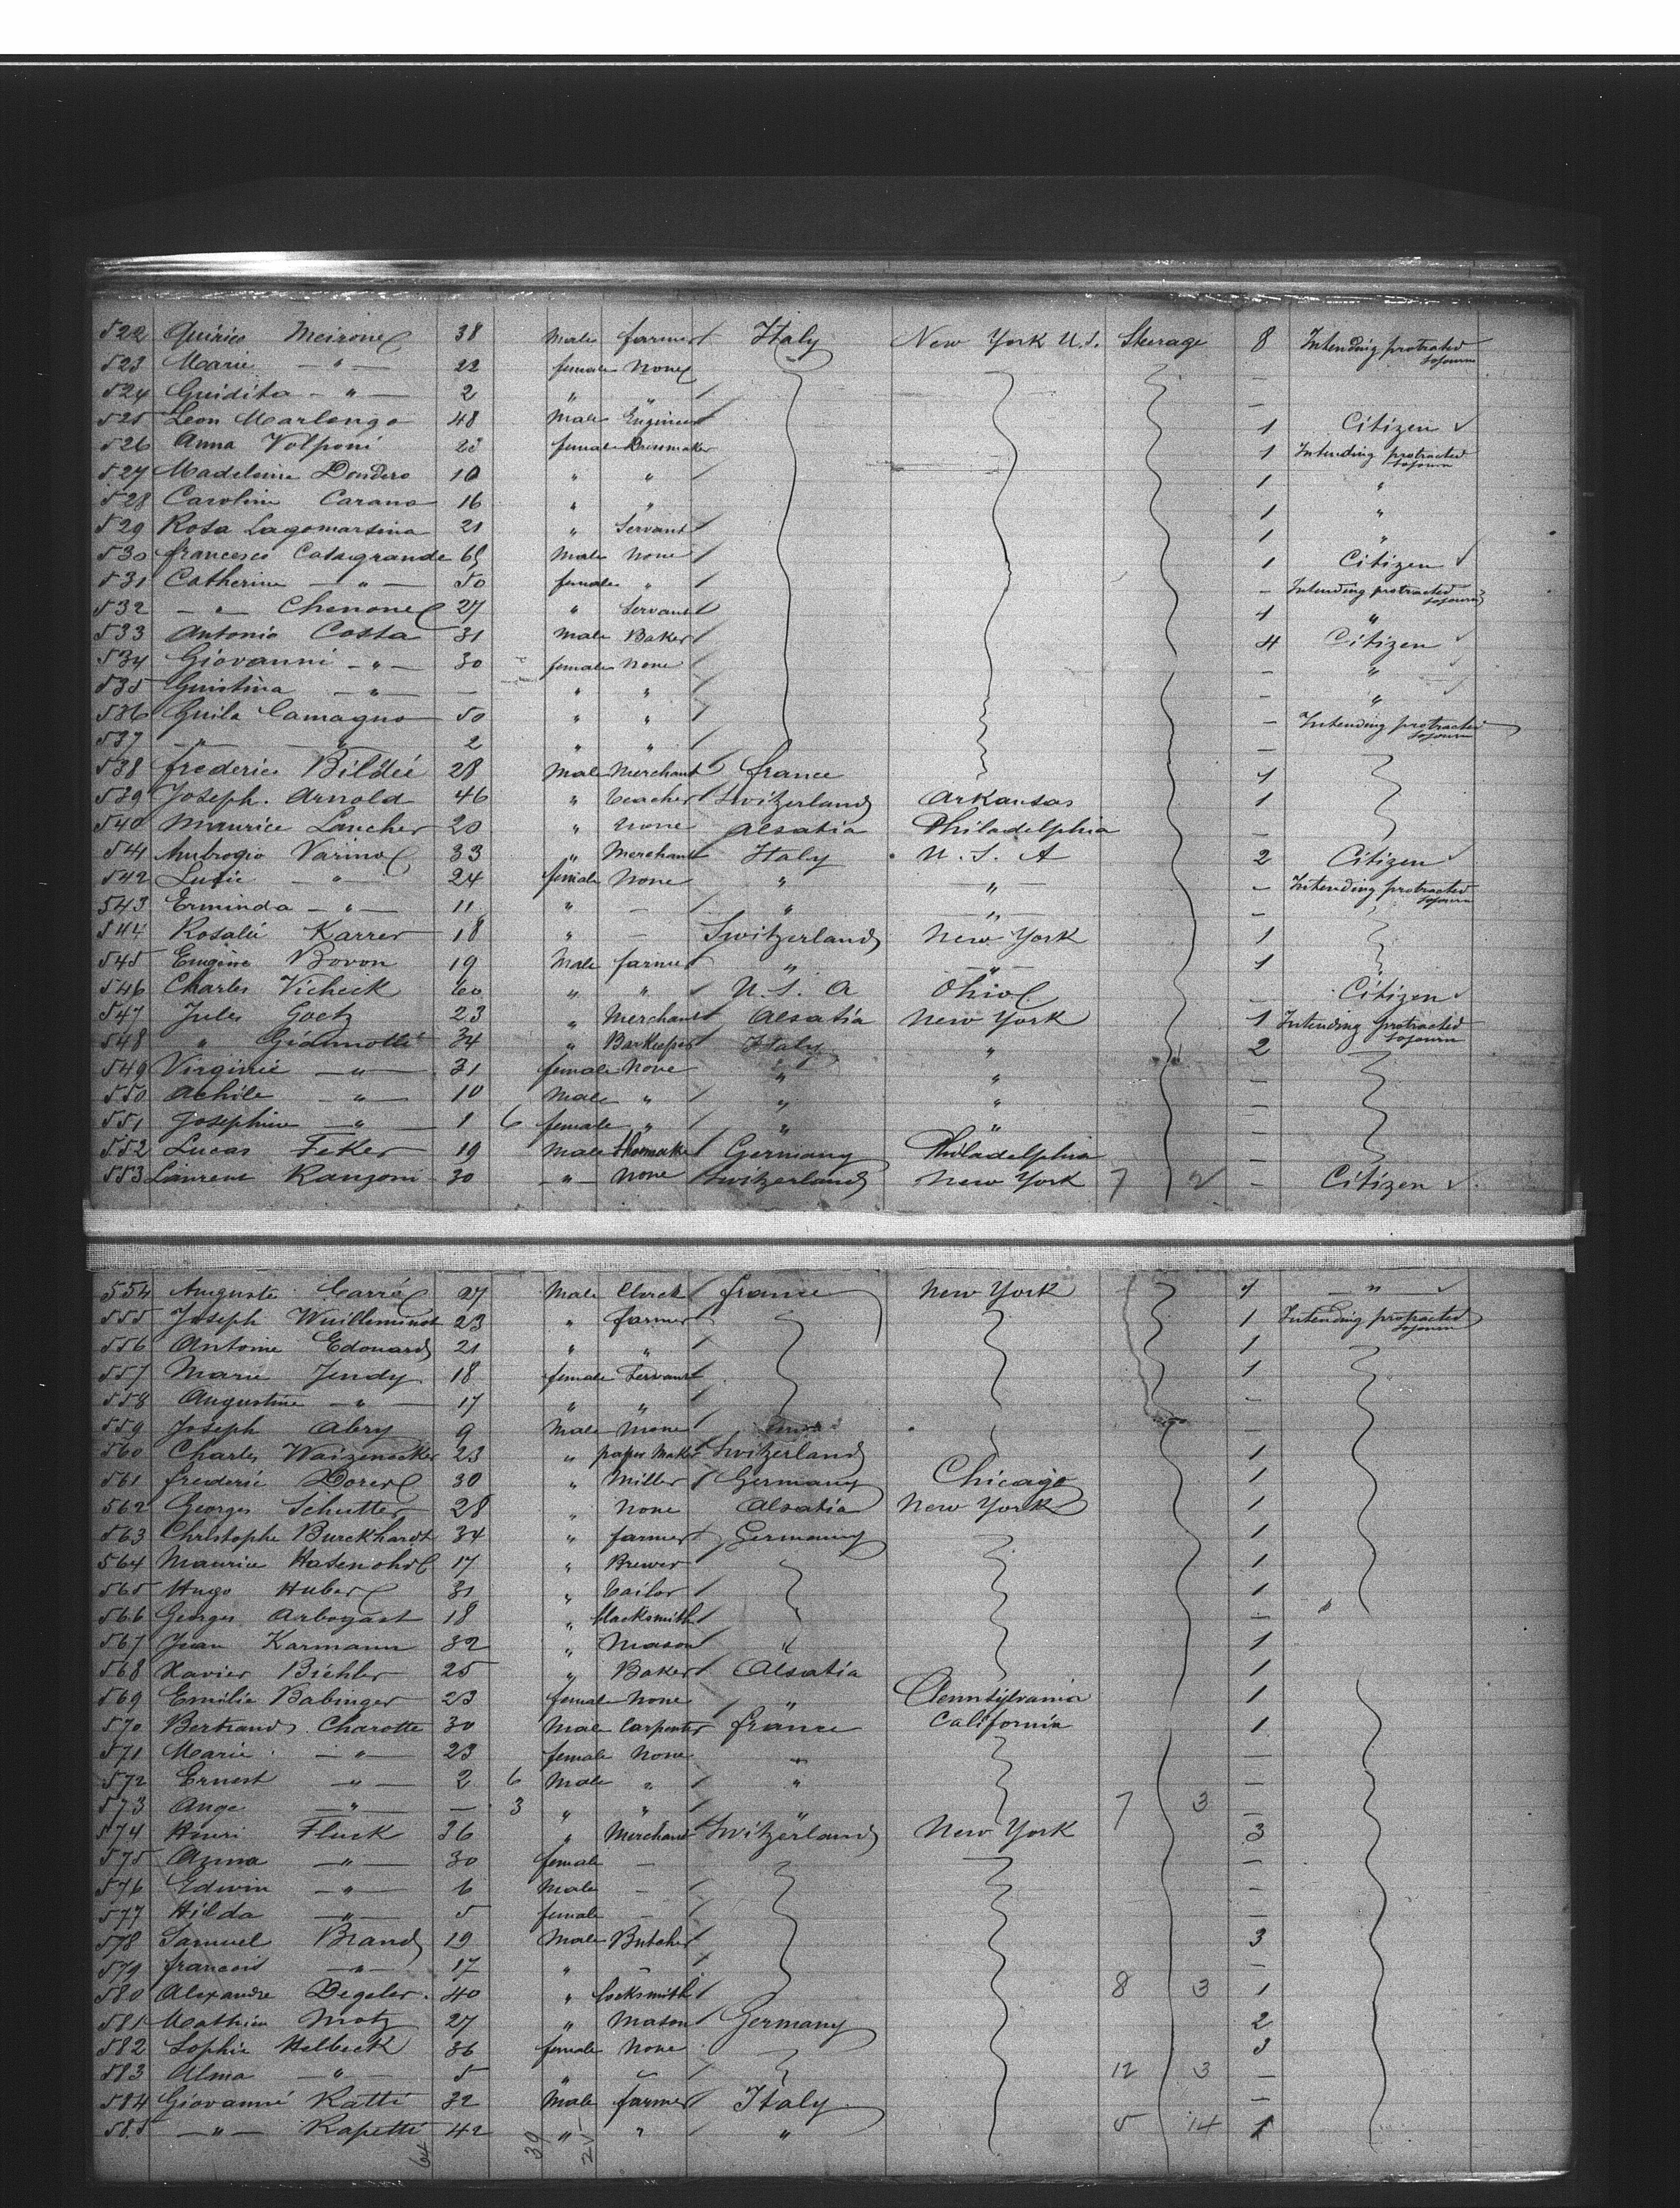 522 Quirico Meirone 38 Male farmer Italy New York U.S. Steerage 8 Intending protracted sojourn
523 Marie — " — 22 female None —
524 Guidita — " — 2 " " —
525 Leon Marlengo 48 Male Engineer 1 Citizen ✓
526 Anna Volponi 23 female Dressmaker 1 Intending protracted sojourn
527 Madeleine Dondero 10 " " 1 "
528 Caroline Carano 16 " " 1 "
529 Rosa Lagomarsina 21 " Servant 1 "
530 francesco Casagrande 65 Male None 1 Citizen ✓
531 Catherine — " — 50 female " — Intending protracted sojourn
532 — " — Chenone 27 " Servant 1 "
533 Antonio Costa 31 Male Baker 4 Citizen ✓
534 Giovanni — " — 30 female None — " ✓
535 Guistina — " — — " " — " ✓
536 Guila Camagno 50 " " — Intending protracted sojourn
537 — " — " 2 " " —
538 frederic Bildié 28 Male Merchant france 1
539 Joseph. Arnold 46 " teacher Switzerland Arkansas 1
540 Maurice Lancher 20 " None Alsatia Philadelphia —
541 Ambrogio Varino 33 " Merchant Italy U.S. A 2 Citizen ✓
542 Lucie — " — 24 female None " " — Intending protracted sojourn
543 Erminda — " — 11 " — " " —
544 Rosalie Karrer 18 " — Switzerland New York 1
545 Eugène Bovon 19 Male farmer " " 1
546 Charles Vicheck 60 " " U.S. A Ohio — Citizen ✓
547 Jules Goetz 23 " Merchant Alsatia New York 1 Intending protracted sojourn
548 " Giannotti 34 " Barkeeper Italy " 2
549 Virginie — " — 31 female None " " —
550 Achile — " — 10 Male " " " —
551 Josephine — " — 1 6 female " " " —
552 Lucas Feker 19 Male Shoemaker Germany Philadelphia —
553 Laurent Ranzoni 30 — " — None Switzerland New York 7 2 — Citizen ✓
554 Auguste Carré 27 Male Clerck france New York 1 — " — ✓
555 Joseph Wuilleminot 23 " farmer 1 Intending protracted sojourn
556 Antoine Edouard 21 " " 1
557 Marie Jendy 18 female Servant 1
558 Augustine — " — 17 " " —
559 Joseph Abry 9 Male None —
560 Charles Waizenecker 23 " paper Maker Switzerland 1
561 frederic Dorer 30 " Miller Germany Chicago 1
562 Georges Schutter 28 " None Alsatia New York 1
563 Christophe Burckhardt 34 " farmer Germany 1
564 Maurice Hasenohrl 17 " Brewer 1
565 Hugo Huber 31 " tailor 1
566 Georges Arbogast 18 " blacksmith — "
567 Jean Karmann 32 " Mason " 1
568 Xavier Biehler 25 " Baker Alsatia 1
569 Emilie Babinger 23 female None " Pennsylvania 1
570 Bertrand Charotte 30 Male Carpenter france California 1
571 Marie — " — 23 female None " —
572 Ernest — " — 2 6 Male " " —
573 Ange — " — — 3 " " " 7 3 —
574 Henri Fluck 36 " Merchant Switzerland New York 3
575 Azma — " — 30 female — —
576 Edwin — " — 6 Male — —
577 Hilda — " — 5 female — —
578 Samuel Brand 19 Male Butcher 3
579 francois — " — 17 " —
580 Alexandre Degeler 40 " locksmith 8 3 1
581 Mathieu Motz 27 " Mason Germany 2
582 Sophie Helbeck 36 female None 3
583 Alma — " — 5 " 12 3 —
584 Giovanni Ratti 32 Male farmer Italy —
585 — " — Rapetti 42 " " " 5 14 1
64 39 25